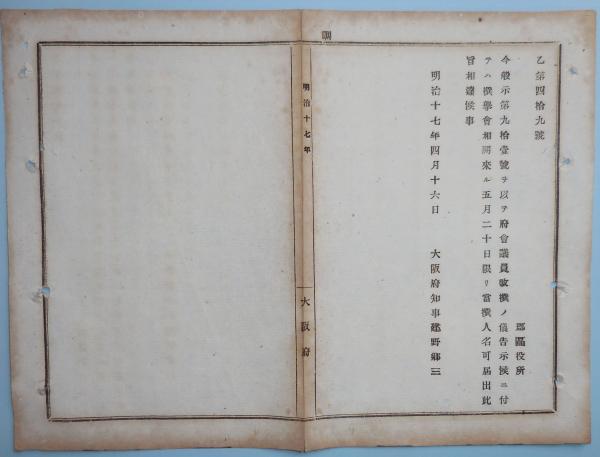 乙第四拾九號
郡區役所
今般示第九拾壹號ヲ以テ府會議員改撰ノ儀告示候ニ付
テハ撰擧會相開來ル五月二十日限リ當撰人名可届出此
旨相達候事
明治十七年四月十六日 大阪府知事建野郷三
明治十七年
大阪府